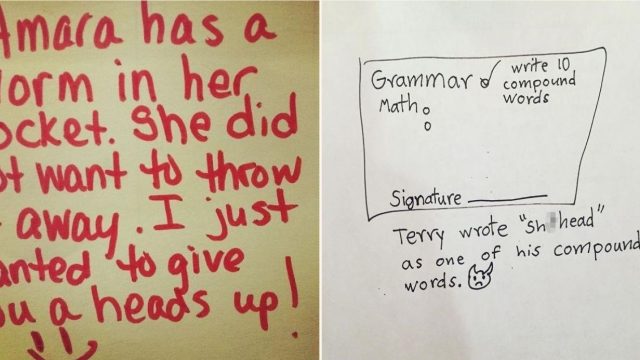 Amara has a
orm in her
ocket. She did
ot want to throw
away. I just
anted to give
ou a heads up!
Grammar ✓ write 10
compound
Math
words
Signature
Terry wrote "sh head"
as one of his compound
words.